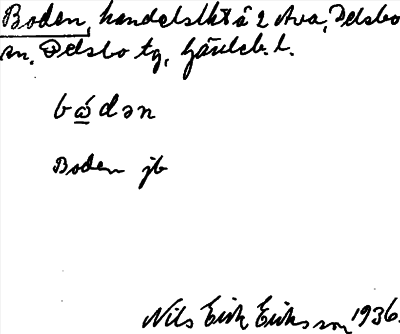 Boden, handelslht å 2 Ava, Delsbo
sn, Delsbo tg, Gävleb. l.
bådən
Boden jb
Nils Erik Eriksson 1936.